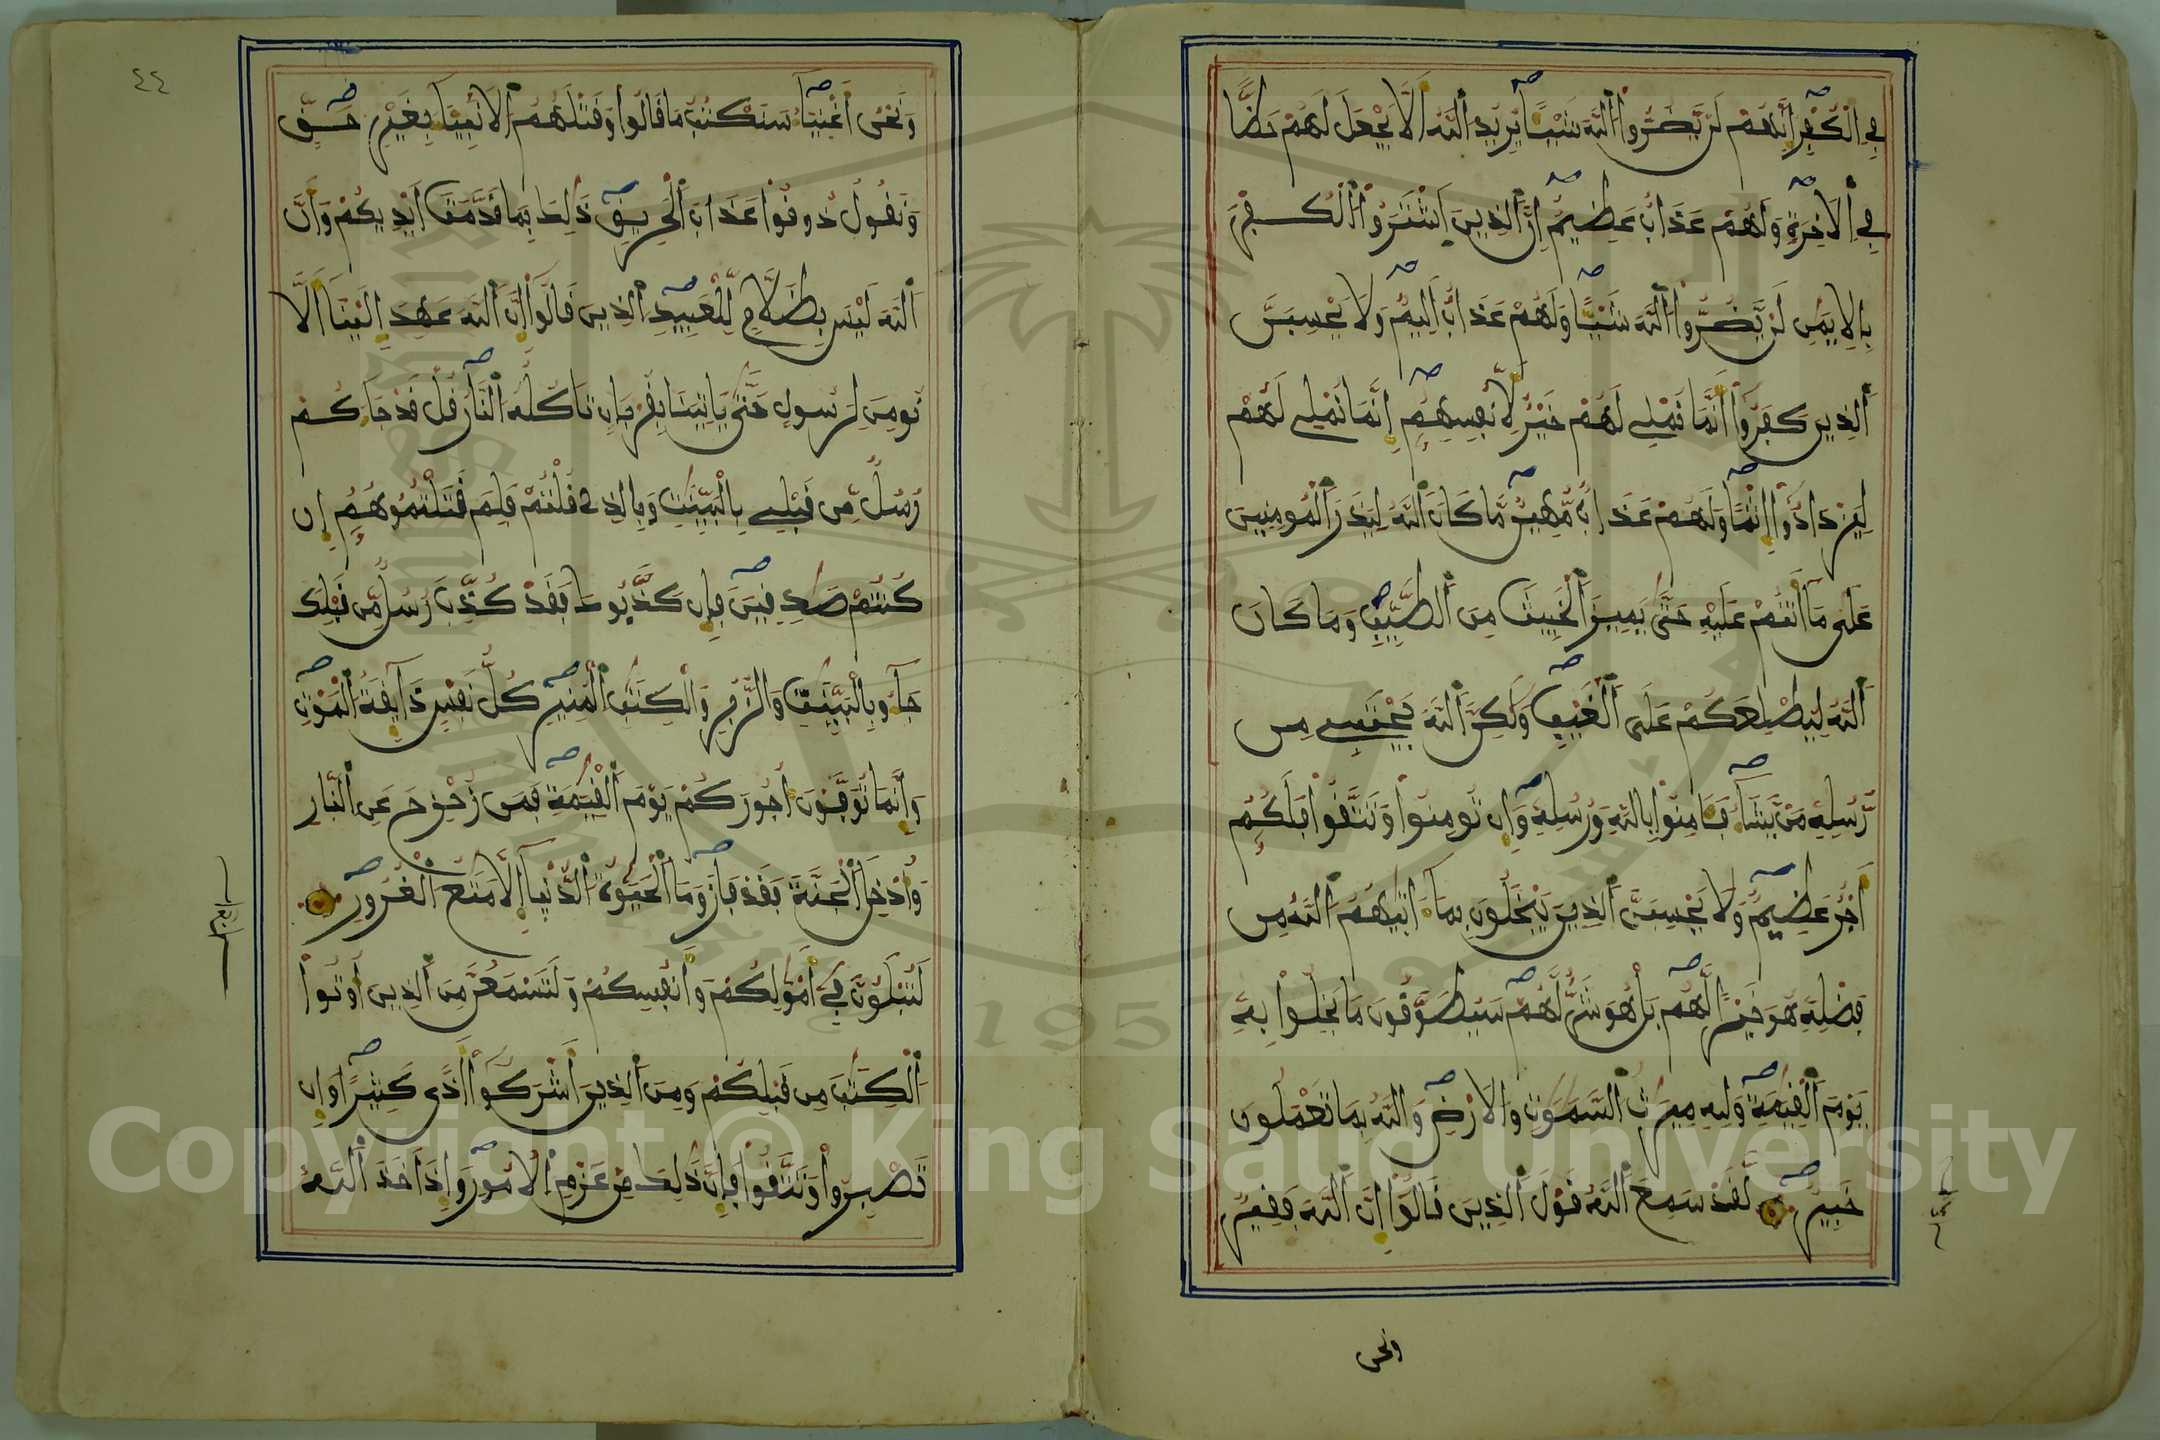 فِي الْكُفْرِ إِنَّهُمْ لَنْ يَّضُرُّوا اللَّهَ شَيْئًا يُرِيدُ اللَّهُ أَلَّا يَجْعَلَ لَهُمْ حَظًّا
فِي الْآخِرَةِ وَلَهُمْ عَذَابٌ عَظِيمٌ إِنَّ الَّذِينَ اشْتَرَوُا الْكُفْرَ
بِالْإِيمَٰنِ لَنْ يَّضُرُّوا اللَّهَ شَيْئًا وَلَهُمْ عَذَابٌ أَلِيمٌ وَلَا يَحْسِبَنَّ
الَّذِينَ كَفَرُوا أَنَّمَا نُمْلِي لَهُمْ خَيْرٌ لِّأَنْفُسِهِمُ إِنَّمَا نُمْلِي لَهُمْ
لِيَزْدَادُوا إِثْمًا وَلَهُمْ عَذَابٌ مُّهِينٌ مَّا كَانَ اللَّهُ لِيَذَرَ الْمُومِنِينَ
عَلَىٰ مَا أَنْتُمْ عَلَيْهِ حَتَّىٰ يَمِيزَ الْخَبِيثَ مِنَ الطَّيِّبِ وَمَا كَانَ
اللَّهُ لِيُطْلِعَكُمْ عَلَى الْغَيْبِ وَلَٰكِنَّ اللَّهَ يَجْتَبِي مِن
رُّسُلِهِ مَنْ يَّشَاءُ فَـَٔامِنُوا بِاللَّهِ وَرُسُلِهِ وَإِن تُومِنُوا وَتَتَّقُوا فَلَكُمُ
أَجْرٌ عَظِيمٌ وَلَا يَحْسِبَنَّ الَّذِينَ يَبْخَلُونَ بِمَا ءَاتَىٰهُمُ اللَّهُ مِن
فَضْلِهِ هُوَ خَيْرًا لَّهُم بَلْ هُوَ شَرٌّ لَّهُمْ سَيُطَوَّقُونَ مَا بَخِلُوا بِهِ
يَوْمَ الْقِيَٰمَةِ وَلِلَّهِ مِيرَٰثُ السَّمَٰوَٰتِ وَالْأَرْضِ وَاللَّهُ بِمَا تَعْمَلُونَ
خَبِيرٌ لَّقَدْ سَمِعَ اللَّهُ قَوْلَ الَّذِينَ قَالُوا إِنَّ اللَّهَ فَقِيرٌ
ونحن
٤٤
وَنَحْنُ أَغْنِيَاءُ سَنَكْتُبُ مَا قَالُوا وَقَتْلَهُمُ الْأَنْبِيَاءَ بِغَيْرِ حَقٍّ
وَنَقُولُ ذُوقُوا عَذَابَ الْحَرِيقِ ذَٰلِكَ بِمَا قَدَّمَتَ اَيْدِيكُمْ وَأَنَّ
اللَّهَ لَيْسَ بِظَلَّامٍ لِّلْعَبِيدِ الَّذِينَ قَالُوا إِنَّ اللَّهَ عَهِدَ إِلَيْنَا أَلَّا
نُومِنَ لِرَسُولٍ حَتَّىٰ يَاتِيَنَا بِقُرْبَانٍ تَاكُلُهُ النَّارُ قُلْ قَدْ جَاءَكُمْ
رُسُلٌ مِّن قَبْلِي بِالْبَيِّنَٰتِ وَبِالَّذِي قُلْتُمْ فَلِمَ قَتَلْتُمُوهُمُ إِن
كُنْتُمْ صَٰدِقِينَ فَإِن كَذَّبُوكَ فَقَدْ كُذِّبَ رُسُلٌ مِّن قَبْلِكَ
جَاءُو بِالْبَيِّنَٰتِ وَالزُّبُرِ وَالْكِتَٰبِ الْمُنِيرِ كُلُّ نَفْسٍ ذَائِقَةُ الْمَوْتِ
وَإِنَّمَا تُوَفَّوْنَ أُجُورَكُمْ يَوْمَ الْقِيَٰمَةِ فَمَن زُحْزِحَ عَنِ النَّارِ
وَأُدْخِلَ الْجَنَّةَ فَقَدْ فَازَ وَمَا الْحَيَوٰةُ الدُّنْيَا إِلَّا مَتَٰعُ الْغُرُورِ
لَتُبْلَوُنَّ فِي أَمْوَٰلِكُمْ وَأَنْفُسِكُمْ وَلَتَسْمَعُنَّ مِنَ الَّذِينَ أُوتُوا
الْكِتَٰبَ مِن قَبْلِكُمْ وَمِنَ الَّذِينَ أَشْرَكُوا أَذًى كَثِيرًا وَإِن
تَصْبِرُوا وَتَتَّقُوا فَإِنَّ ذَٰلِكَ مِنْ عَزْمِ الْأُمُورِ وَإِذَ اَخَذَ اللَّهُ
Copyright © King Saud University
1957